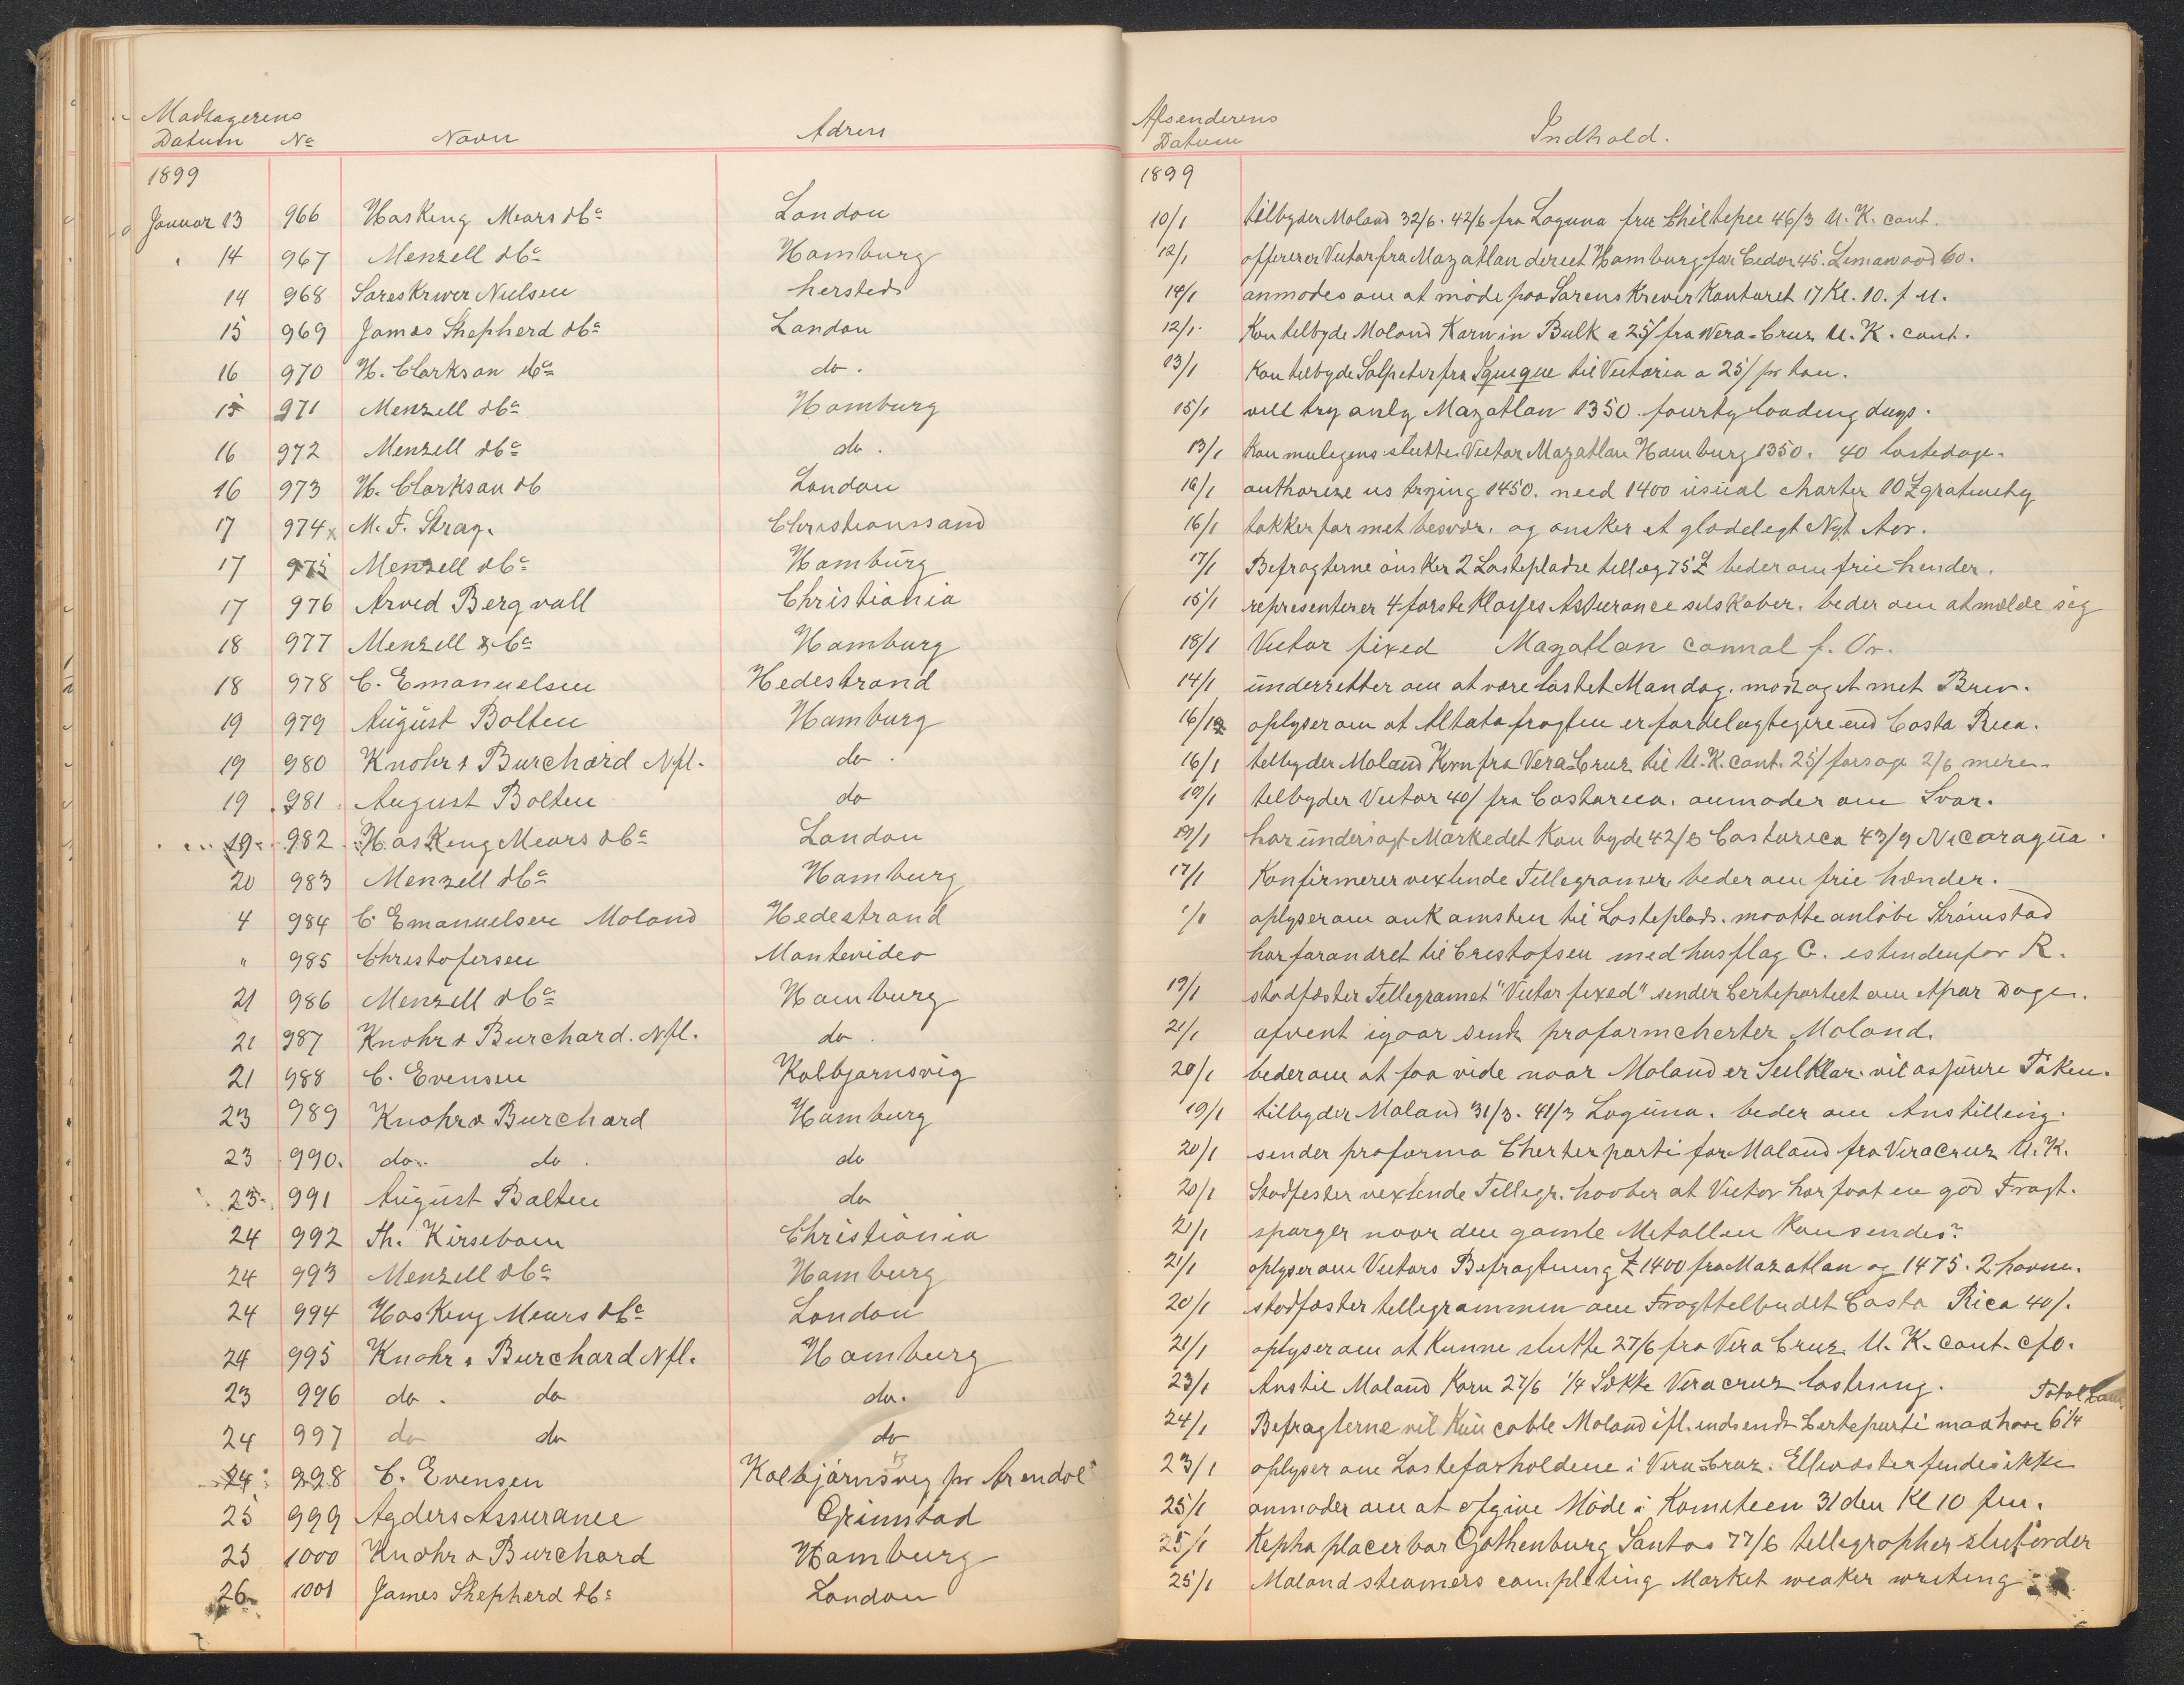 Modtagerens
Datum No Navn Adress
Afsenderens
Datum Indhold.
1899
1899
Januar 13 966 Hasking Mears & Co London 10/1 tilbyder Moland 32/6. 42/6 fra Laguna fra Chiltepec 46/3 U. K. cont.
14 967 Menzell & Co Hamburg 12/1 offererer Victor fra Mazatlan direct Hamburg for Ceder 45. Limawood 60.
14 968 Soreskriver Nielsen hersteds 14/1 anmodes om at møde paa Sorenskriver Kontoret 17 Kl. 10. f. M.
15 969 James Shepherd & Co London 12/1 Kan tilbyde Moland Korn in Bulk a 25/ fra Vera-Cruz U. K. cont.
16 970 H. Clarkson & Co do. 13/1 Kan tilbyde Salpeter fra Iquique til Victoria a 25/ pr ton.
15 971 Menzell & Co Hamburg 15/1 will try only Mazatlan 1350. fourty loading days.
16 972 Menzell & Co do. 13/1 Kan muligens slutte Victor Mazatlan Hamburg 1350. 40 lastedage.
16 973 H. Clarkson & C London 16/1 authorize us trying 1450. need 1400 usual charter 10£ gratuity
17 974 x M. F. Stray. Christianssand 16/1 takker for mit besvær. og ønsker et glædeligt Nyt Aar.
17 975 Menzell & Co Hamburg 17/1 Befragterne ønsker 2 Lastepladse tillæg 75£ beder om frie hender.
17 976 Arved Bergvall Christiania 15/1 representerer 4 første Klasses Assurance selskaber. beder om at melde sig
18 977 Menzell & Co Hamburg 18/1 Victor fixed Mazatlan cannal f. Or.
18 978 C. Emanuelsen Hedestrand 14/1 underretter om at være lastet Mandag. modtaget mit Brev.
19 979 August Bolten Hamburg 16/1 oplyser om at Altata fragten er fordelagtigere end Costa Rica.
19 980 Knohr & Burchard Nfl. do. 16/1 tilbyder Moland Korn fra Vera Cruz til U. K. cont. 25/ forsøge 2/6 mere.
19 981 August Bolten do 19/1 tilbyder Victor 40/ fra Costarica. anmoder om Svar.
19 982 Hasking Mears & Co London 19/1 har undersøgt Markedet Kan byde 42/6 Costarica 43/9 Nicaragua.
20 983 Menzell & Co Hamburg 17/1 Konfirmerer vexlende Tillegramer beder om frie hænder.
4 984 C Emanuelsen Moland Hedestrand 1/1 oplyser om ankomsten til Lasteplads. maatte anløbe Strømstad
" 985 Christofersen Montevideo har forandret til Cristofsen med husflag C. istedenfor R.
21 986 Menzell & Co Hamburg 19/1 stadfæster Tellegramet "Victor fixed" sender Certepartiet om et par Dage.
21 987 Knohr & Burchard. Nfl. do. 21/1 afvent igaar sendt proformcherter Moland.
21 988 C. Evensen Kolbjørnsvig 20/1 beder om at faa vide naar Moland er Seilklar. vil assurere Taken.
23 989 Knohr & Burchard Hamburg 19/1 tilbyder Moland 31/3. 41/3 Laguna. beder om Anstilling.
23 990. do. do. do 20/1 sender proforma Cherterparti for Moland fra Veracruz U. K.
23. 991 August Bolten do 20/1 Stadfester vexlende Tillegr. haaber at Victor har faat en god Fragt.
24 992 Th. Kirsebom Christiania 21/1 spørger naar den gamle Metallen Kan sendes?
24 993 Menzell & Co Hamburg 21/1 oplyser om Victors Befragtning £ 1400 fra Mazatlan og 1475. 2 havne.
24 994 Hasking Mears & Co London 20/1 stadfæster tellegrammen om Fragttelbudet Costa Rica 40/.
24 995 Knohr & Burchard Nfl. Hamburg 21/1 oplyser om at Kunne slutte 27/6 fra Vera Cruz. U. K. cont. cfo.
23 996 do. do do. 23/1 Anstil Moland Korn 27/6 1/4 Sække Veracruz lastning. Total
24 997 do do do 24/1 Befragterne vil Kun cable Moland ifl. indsendt Certeparti maa have 6 1/4
24 998 C. Evensen Kolbjørnsvig pr Arendal 23/1 oplyser om Lasteforholdene i Vera Cruz. findes ikke
25 999 Agders Assurance Grimstad 25/1 anmoder om at afgive Møde i Komiteen 31 den Kl 10 fm.
25 1000 Knohr & Burchard Hamburg 25/1 Kepha placerbar Gothenburg Santos 77/6 tellegrapher slutorder
26 1001 James Shepherd & Co London 25/1 Moland steamers completing Market weaker writing